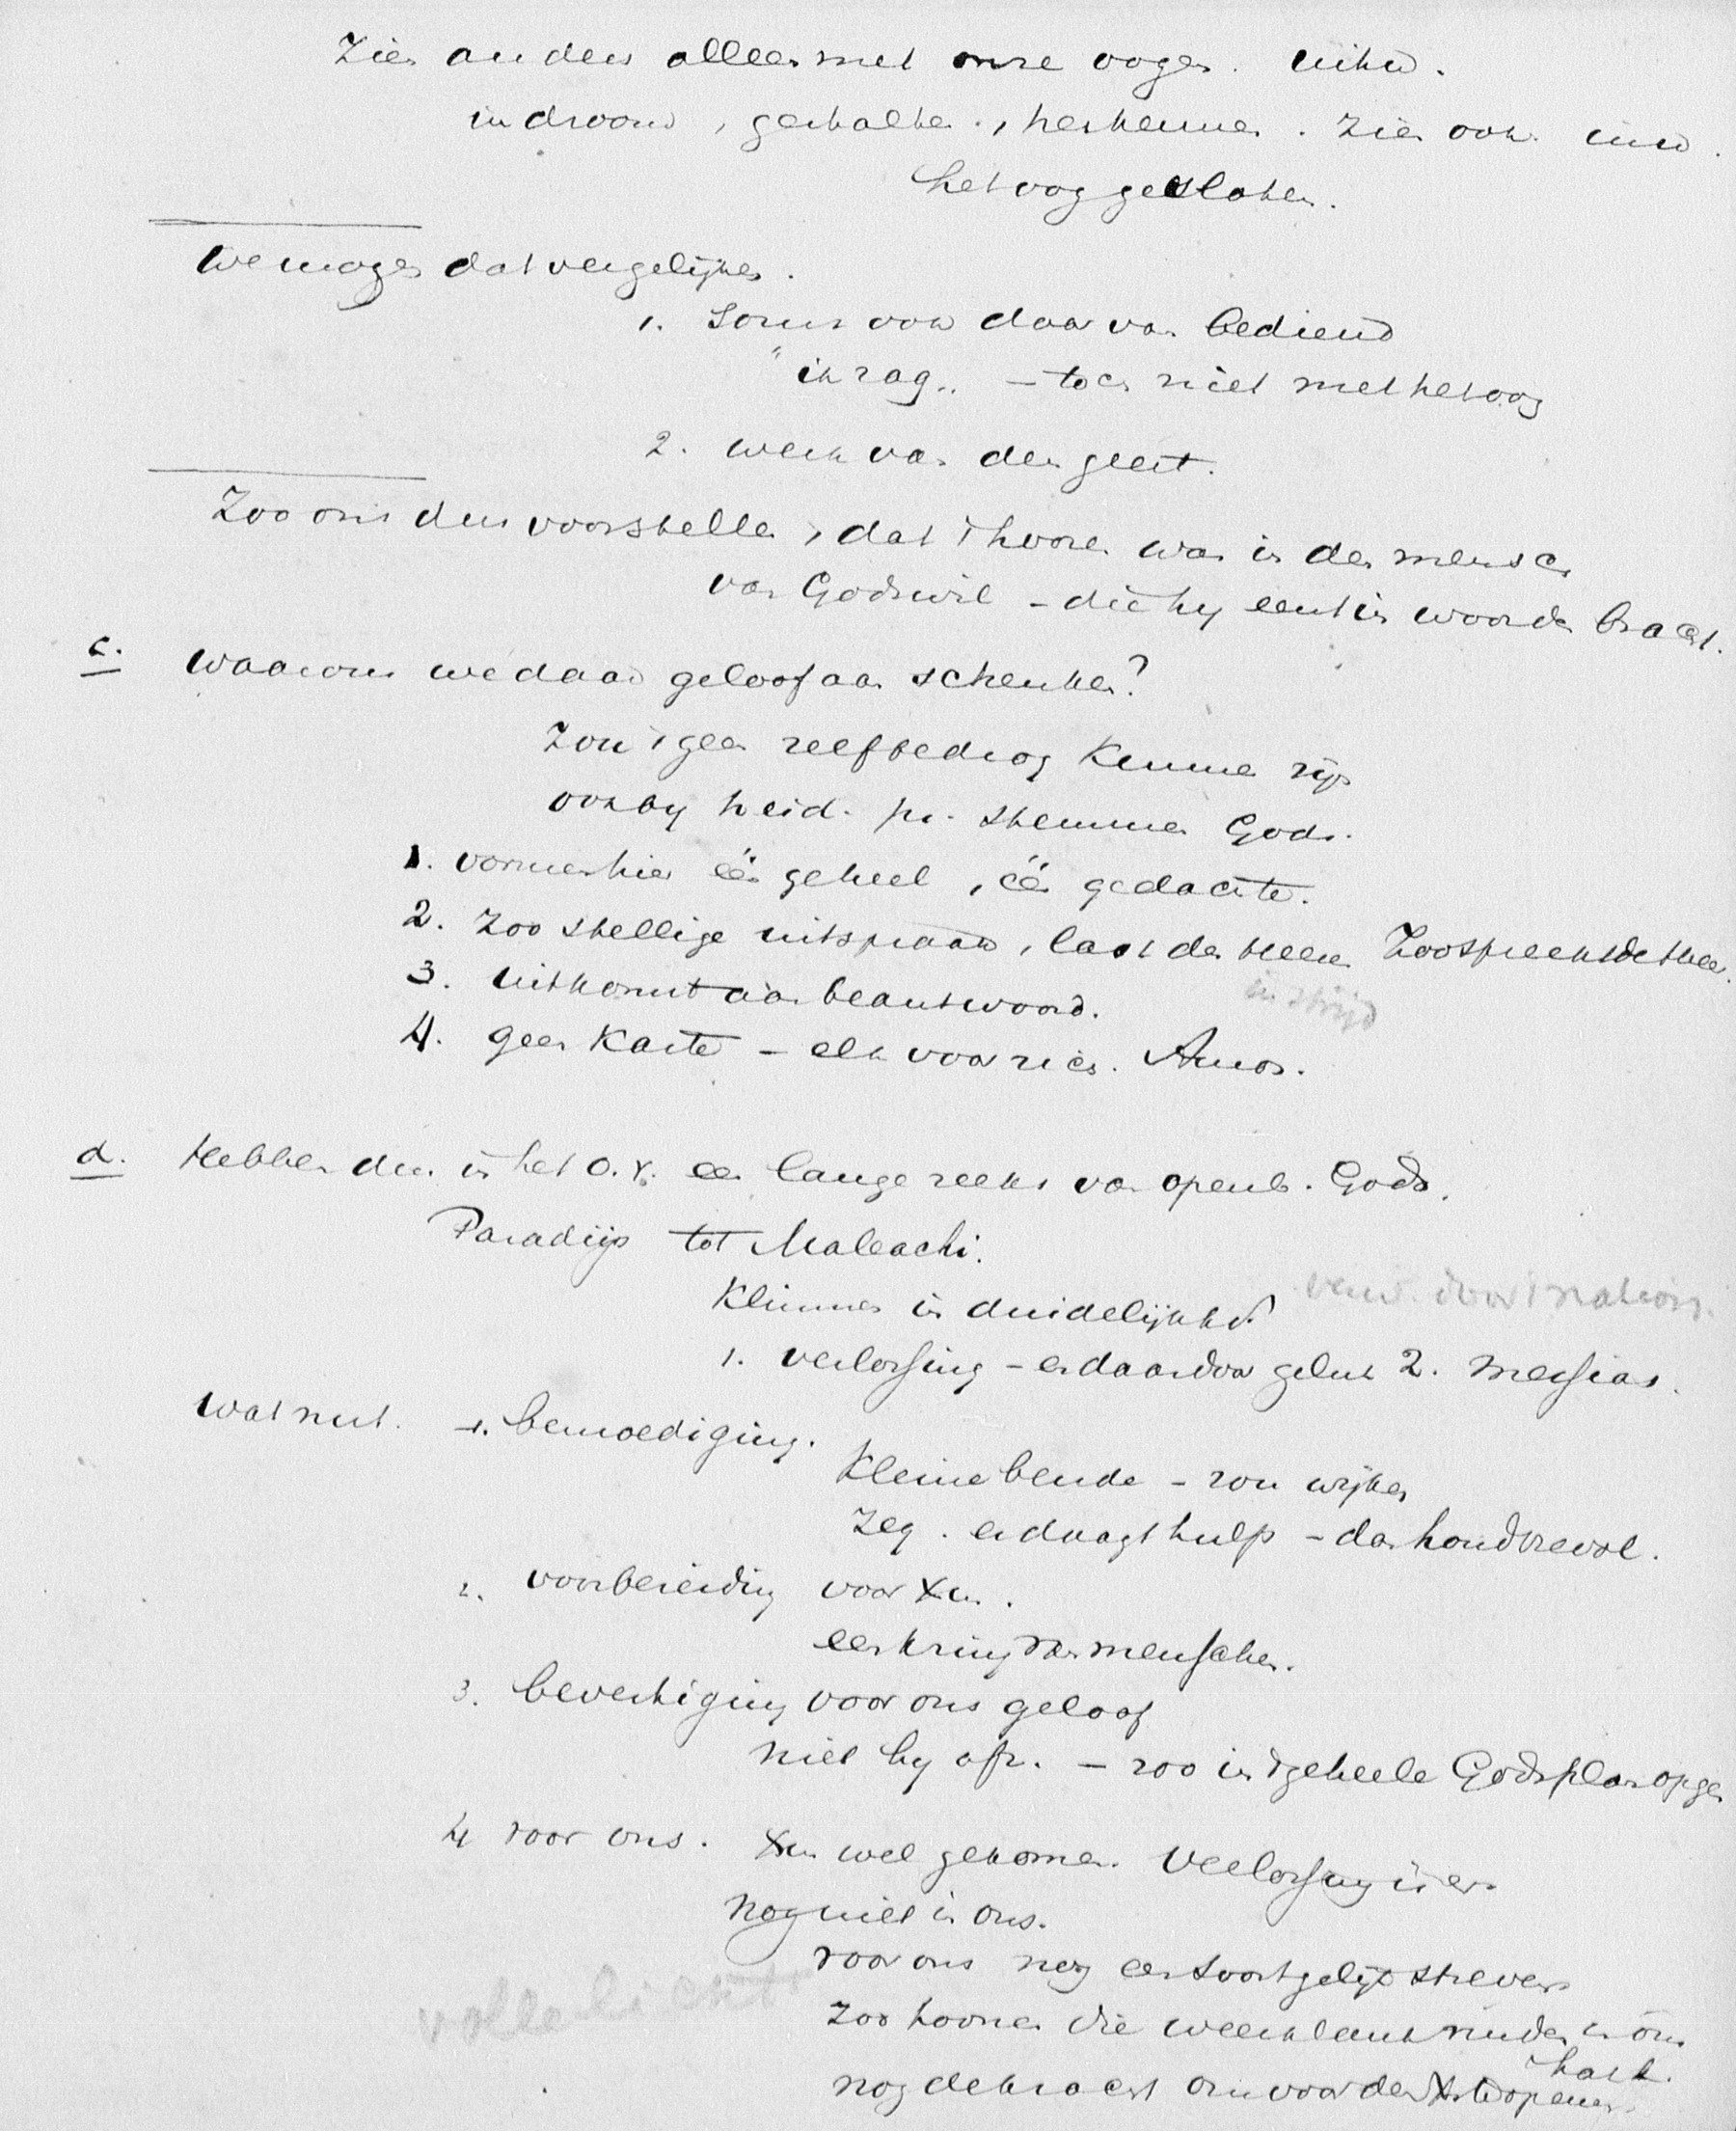 Zien anders alleen met onze oogen. uitw.
in droom, gestalten, herkennen. Zien ook inw.
het oog gesloten.
We mogen dat vergelijken.
1. Soms ook daarvan bediend
"ik zag" – toch niet met het oog
2. werk van den geest.
Zoo ons dus voorstellen, dat 't hooren was in den mensch
van Gods wil – die hij eerst in woorden bracht.
c. Waarom we daar geloof aan schenken?
Zou 't geen zelfbedrog kunnen zijn
ook bij heid. pr. stemmen Gods.
1. vormen hier één geheel, één gedachte.
2. Zoo stellige uitspraak, last des heeren Zoo spreekt de Heer.
3. uitkomst aan beantwoord.
in strijd
4. geen Kaste – elk voor zich. Amos.
d. Hebben dus in het O.V. een lange reeks van openb. Gods.
Paradijs tot Maleachi.
Klimmen in duidelijkhd.
1. verlossing – en daardoor geluk 2. Messias.
Wat nut. 1. bemoediging.
Kleine bende – zou wijken
Zeg. er daagt hulp – dan houdt ze vol.
2. voorbereiding voor Xus.
een kring van menschen.
3. bevestiging voor ons geloof
niet bij – zoo in 't geheele Gods plan opgen
4 voor ons. Xus wel gekomen. Verlossing is er
nog niet in ons.
voor ons nog een soortgelijk streven
Zoo hooren die weerklank vinden in ons
hart.
nog de kracht om voor den te openen
volle licht